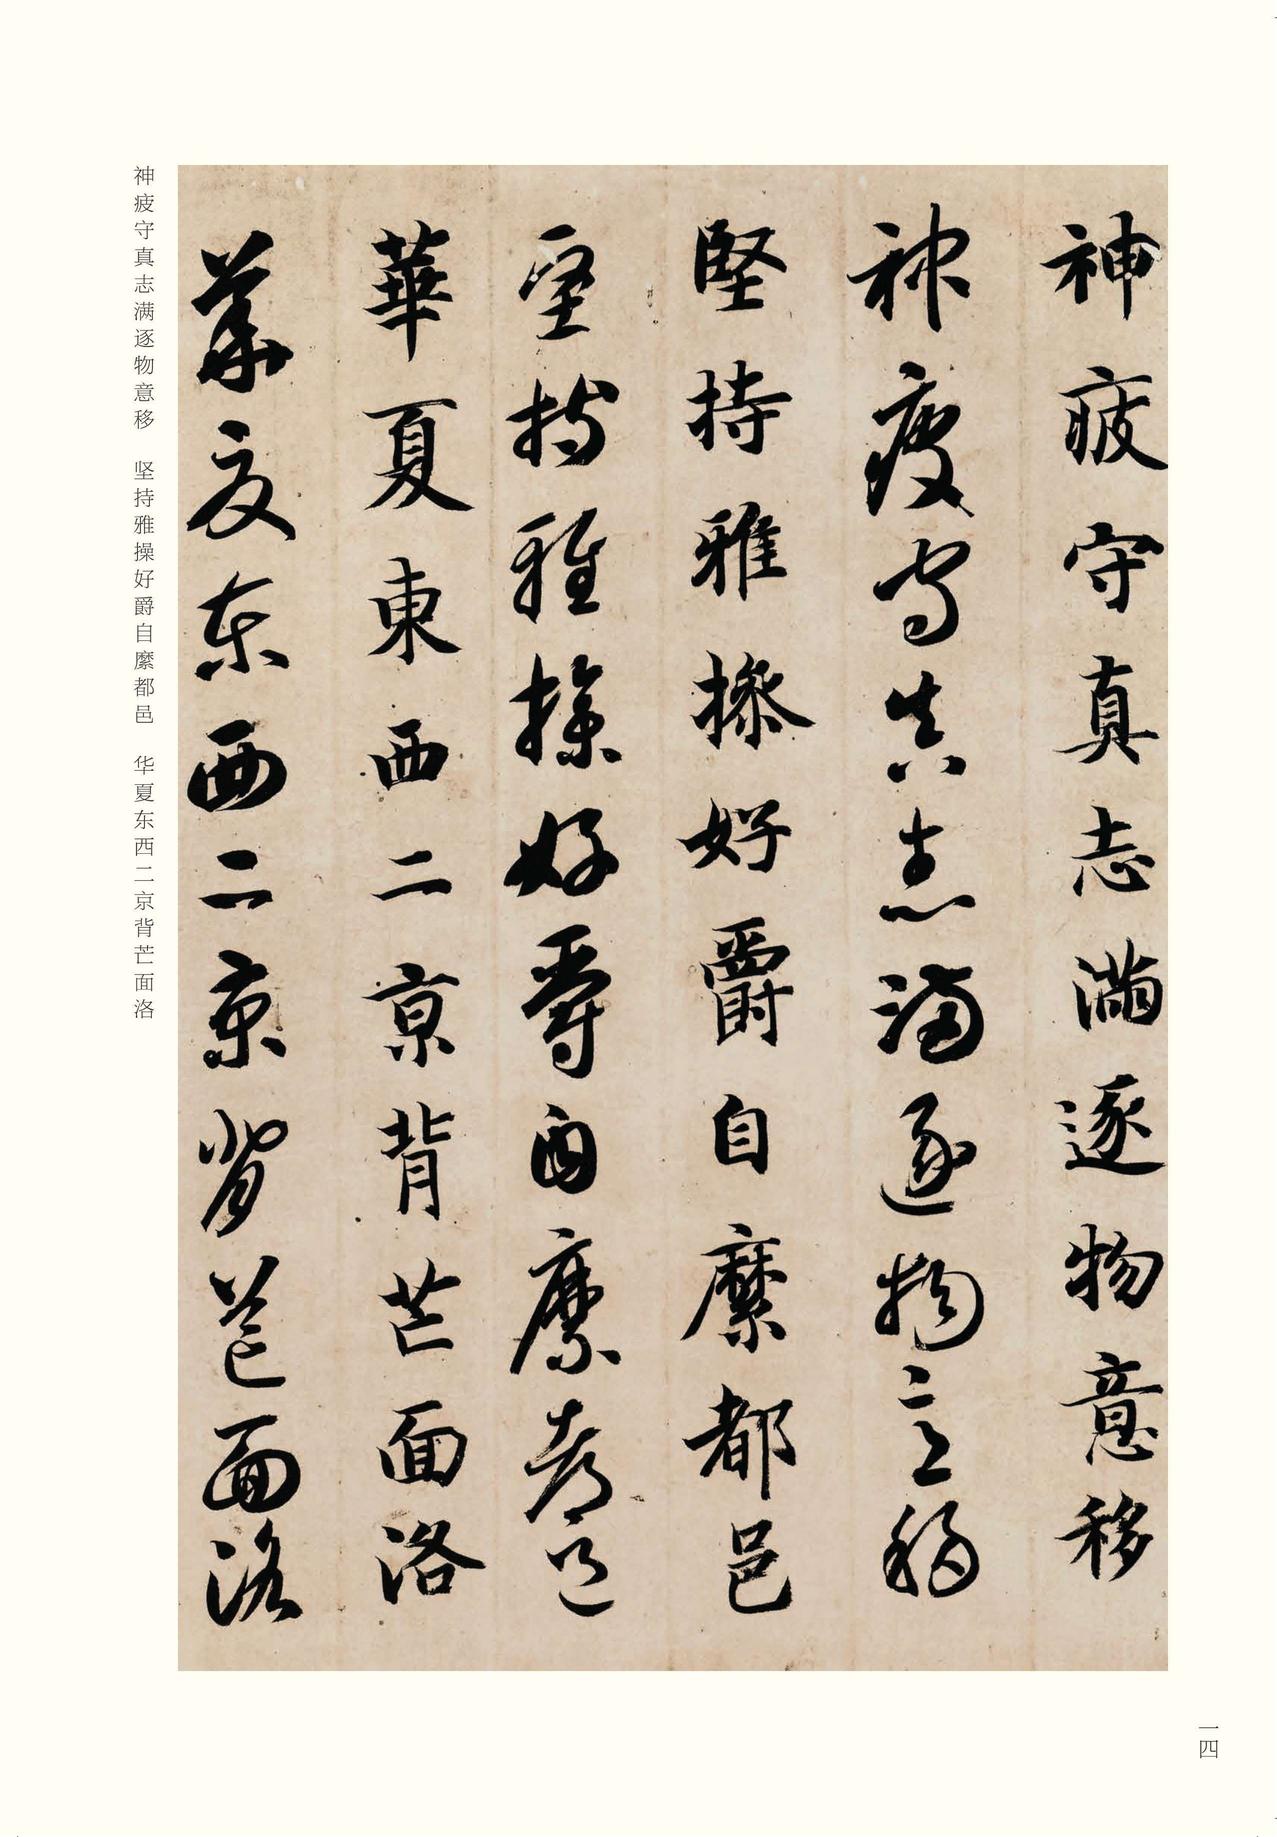 神疲守真志滿逐物意移
神疲守真志滿逐物意移
堅持雅操好爵自縻都邑
堅持雅操好爵自縻都邑
華夏東西二京背芒面洛
華夏東西二京背芒面洛
神疲守真志满逐物意移　坚持雅操好爵自縻都邑　华夏东西二京背芒面洛
一四